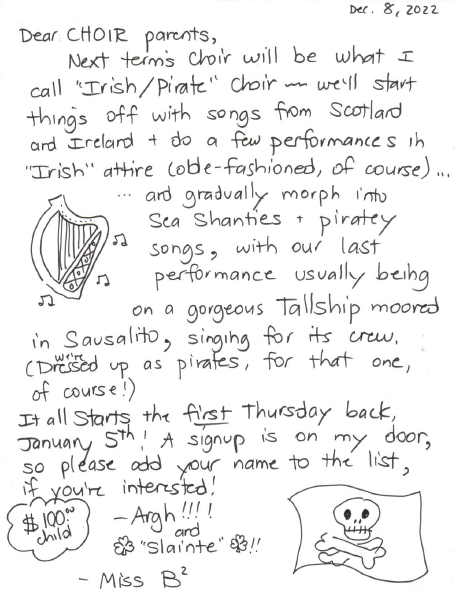 Dec. 8, 2022
Dear CHOIR parents,
Next term's Choir will be what I
call "Irish/Pirate" Choir — we'll start
things off with songs from Scotland
and Ireland + do a few performances in
"Irish" attire (olde-fashioned, of course)...
... and gradually morph into
Sea Shanties + piratey
songs, with our last
performance usually being
on a gorgeous Tallship moored
in Sausalito, singing for its crew.
(We're Dressed up as pirates, for that one,
of course!)
It all starts the first Thursday back,
January 5th! A signup is on my door,
so please add your name to the list,
if you're interested!
$100.00
child
—Argh!!!!
and
"Slainte"!!
- Miss B²